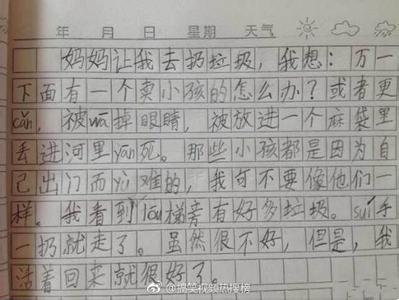 年 月 日 星期 天气
妈妈让我去扔垃圾，我想：万一
下面有一个卖小孩的怎么办？或者更
cǎn，被wā掉眼睛，被放进一个麻袋里
丢进河里yān死。那些小孩都是因为自
己出门而yù难的，我可不要像他们一
样。我看到lóu梯旁有好多垃圾。suí手
一扔就走了。虽然很不好，但是，我
活着回来就很好了。
@搞笑视频热搜榜